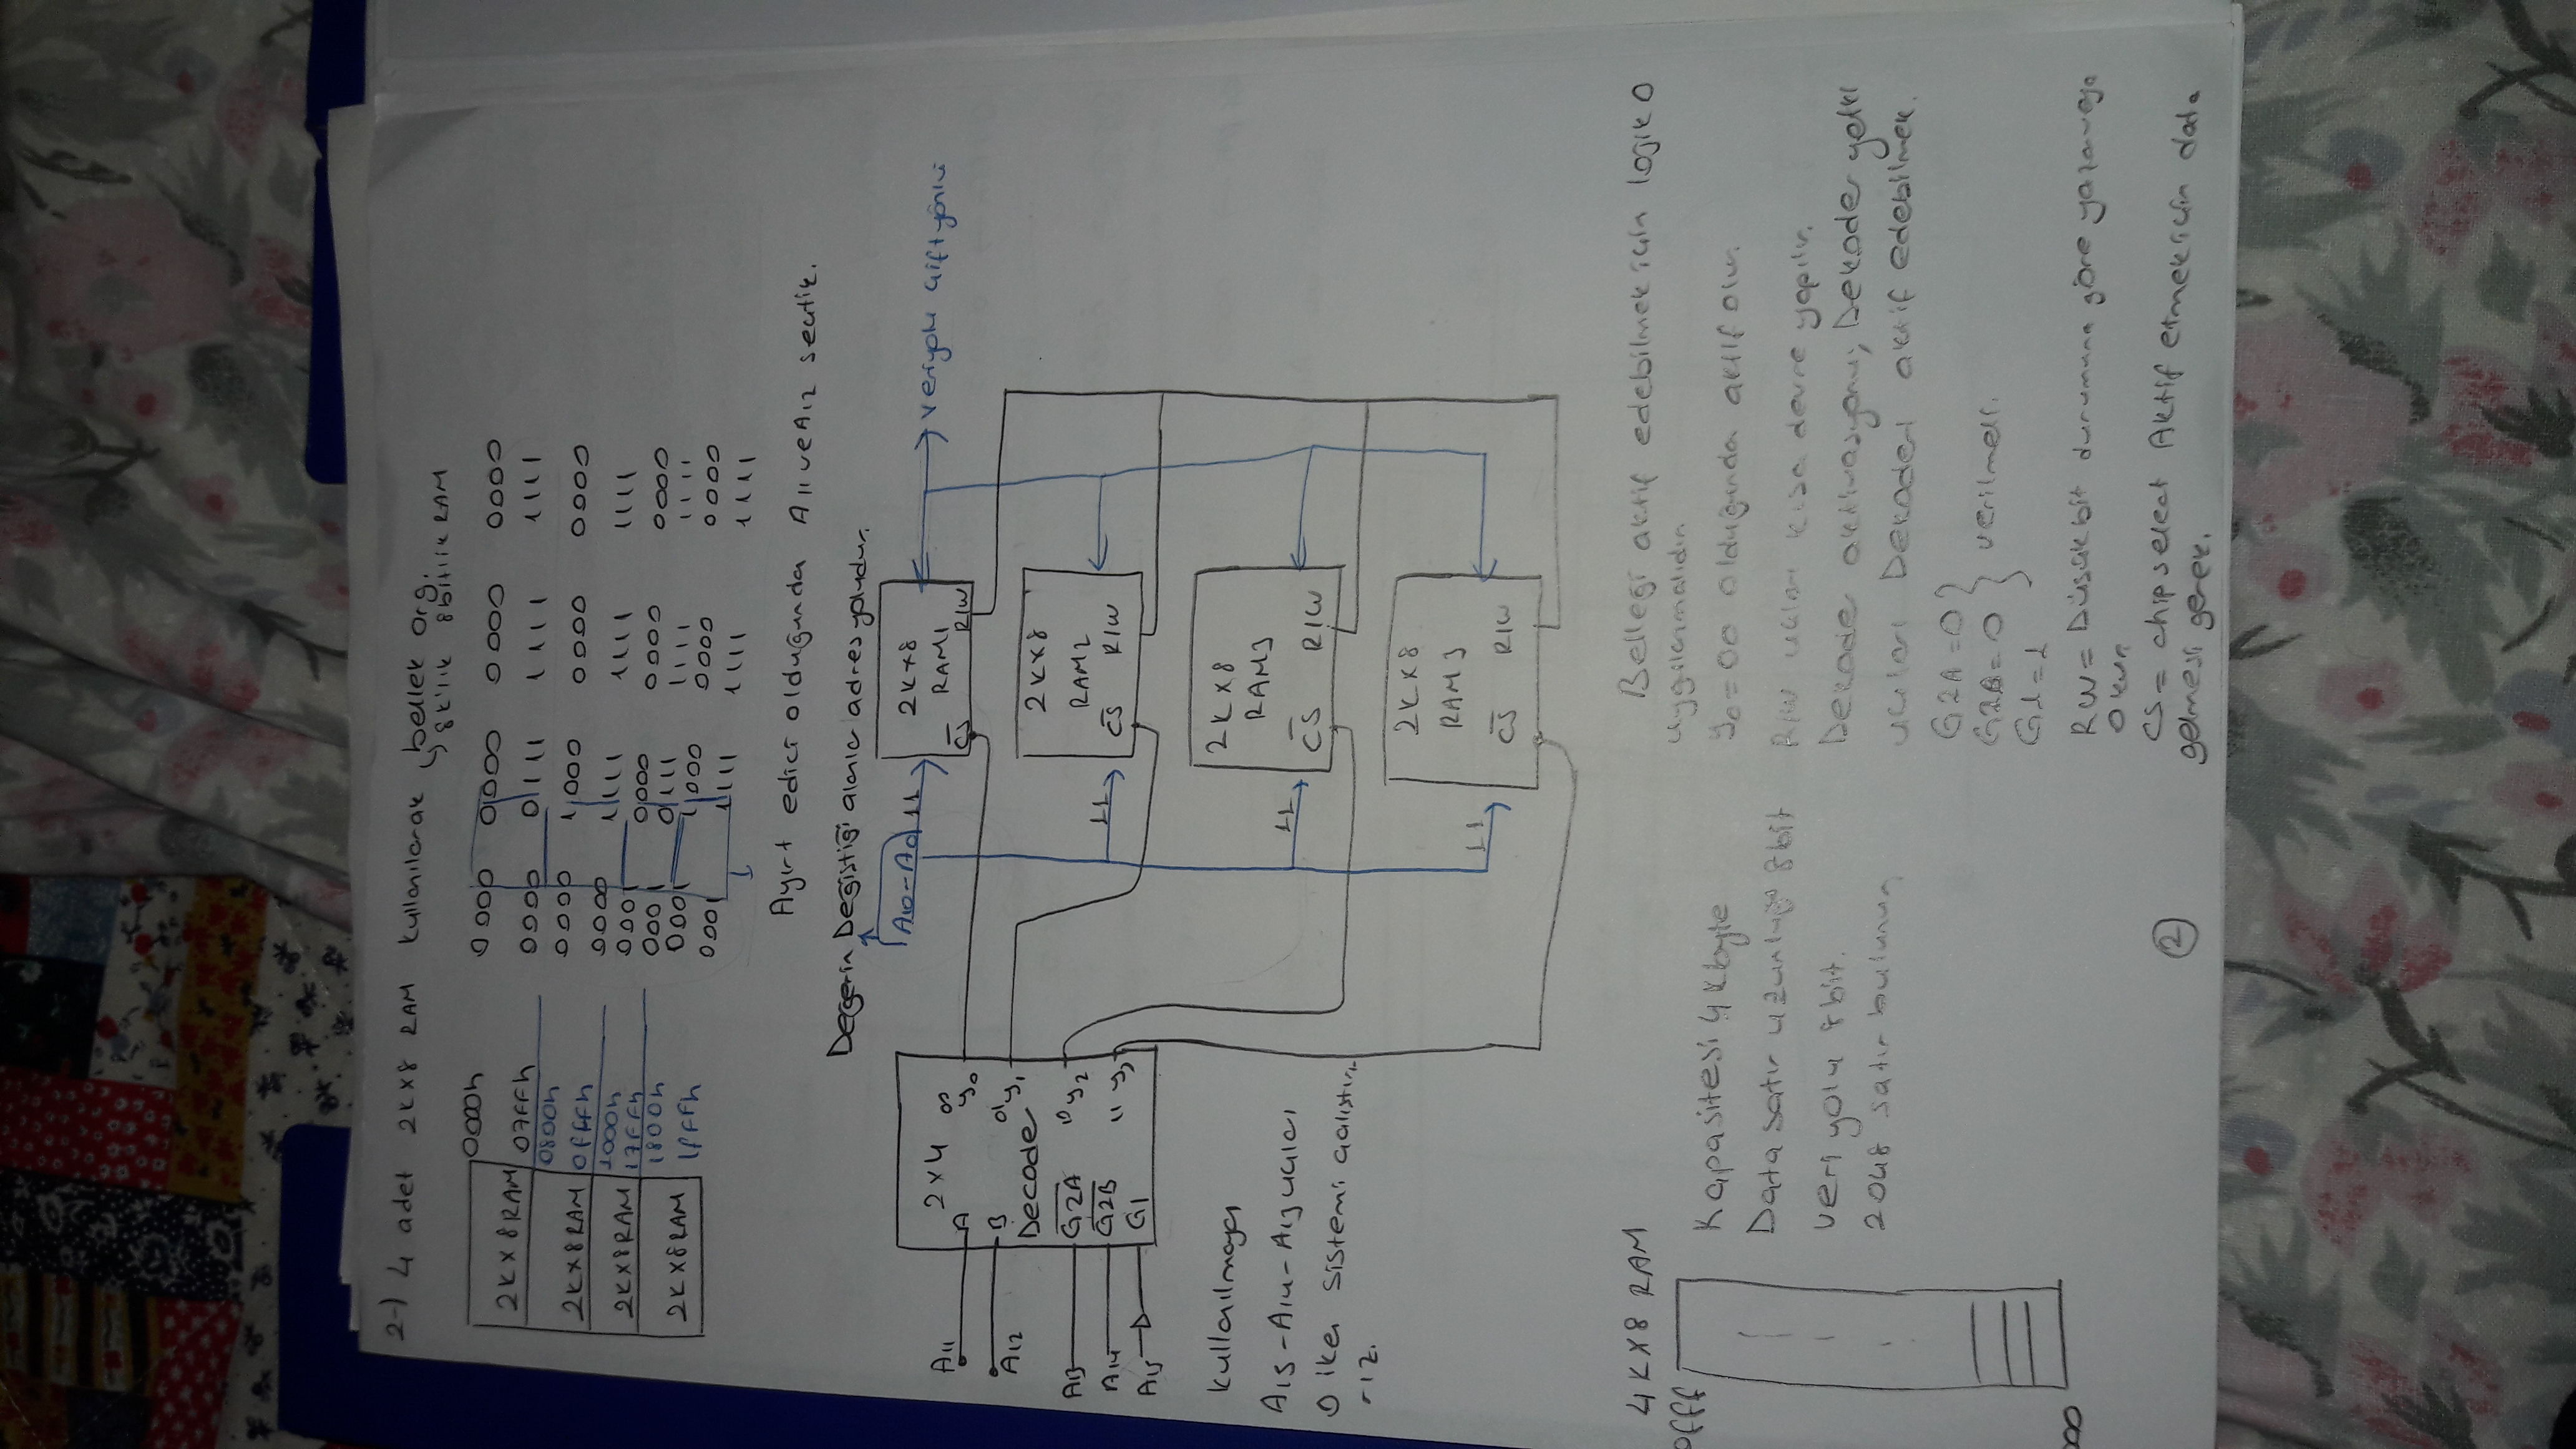 2-) 4 adet 2KX8 RAM kullanılarak bellek org.
↳ 8k'lık 8bitlik RAM
2KX8RAM
0000h
07FFh
2KX8RAM
0800h
0fffh
2KX8RAM
1000h
17FFh
2KX8RAM
1800h
1FFFh
0000 0000 0000 0000
0000 0111 1111 1111
0000 1000 0000 0000
0000 1111 1111 1111
0001 0000 0000 0000
0001 0111 1111 1111
0001 1000 0000 0000
0001 1111 1111 1111
Ayırt edici olduğunda A11 ve A12 seçtik.
Değerin Değiştiği alanlar adres yoludur.
A11
A12
A13
A14
A15
2X4
Decode
A
B
G2A
G2B
G1
00 y0
01 y1
10 y2
11 y3
A10-A0
11
2KX8
RAM1
CS R/W
veriyolu çift yönlü
11
2KX8
RAM2
CS R/W
11
2KX8
RAM3
CS R/W
11
2KX8
RAM3
CS R/W
Kullanılmayan
A15-A14-A13 uçları
0 iken sistemi çalıştırı-
rız.
4KX8 RAM
0fff
Kapasitesi 4kbyte
Data satır uzunluğu 8bit
veri yolu 8bit.
2048 satır bulunur
Belleği aktif edebilmek için lojik 0
uygulanmalıdır
y0=00 olduğunda aktif olur.
R/W uçları kısa devre yapılır.
Dekoder aktivasyonu; Dekoder yetki
uçları Dekoderi aktif edebilmek.
G2A=0
G2B=0
G1=1
verilmeli.
RW= Düşük bit durumuna göre yazar veya
okur
CS= chip select Aktif etmek için data
gelmesi gerek.
2